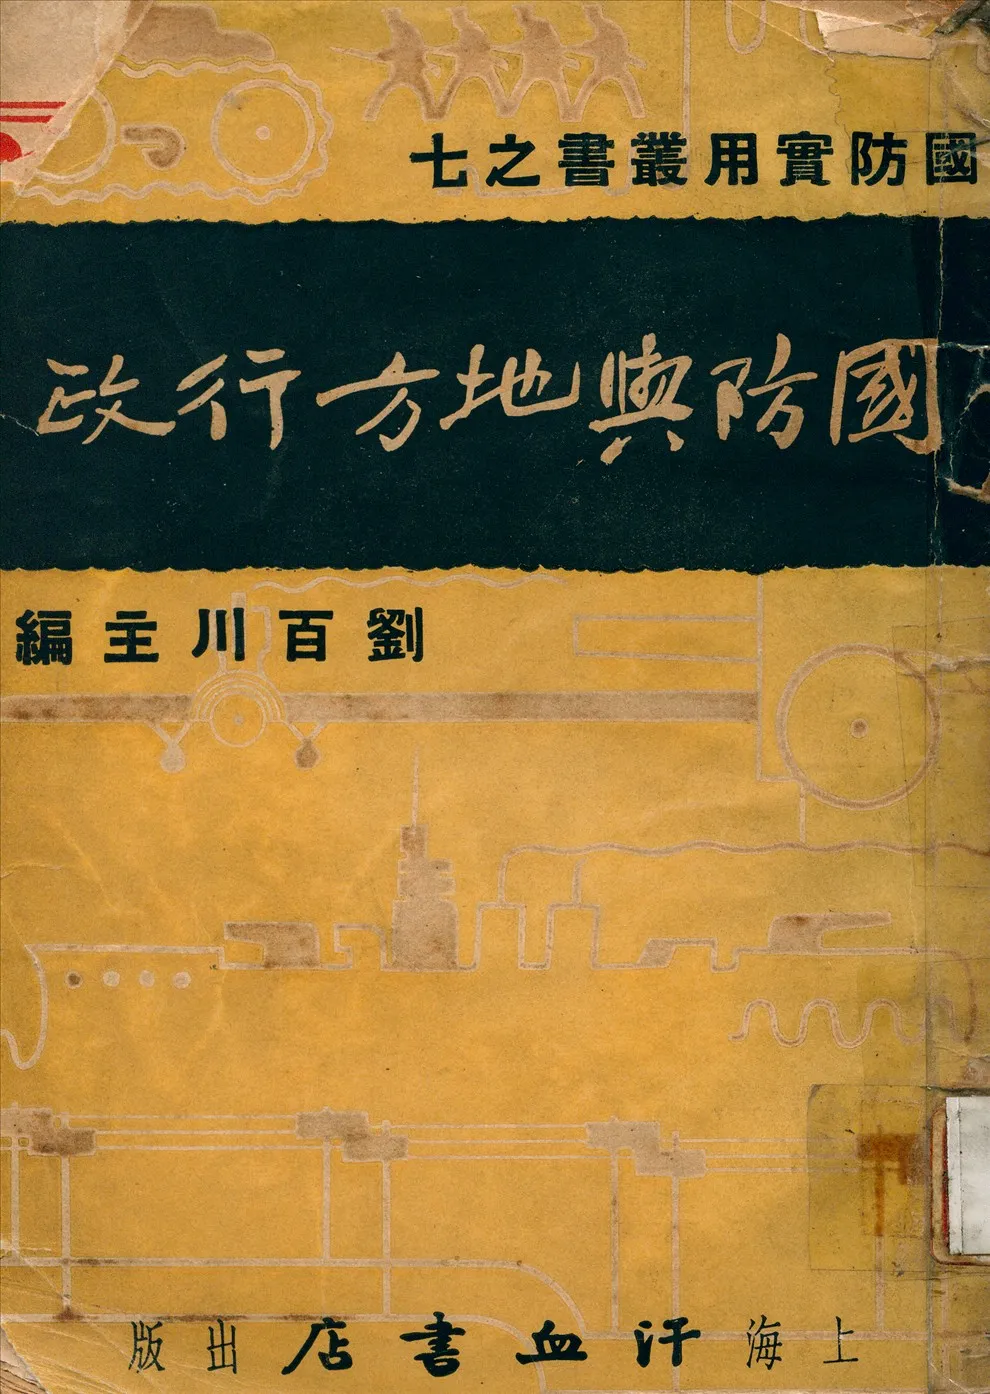 國防實用叢書之七
國防與地方行政
劉百川主編
上海汗血書店出版